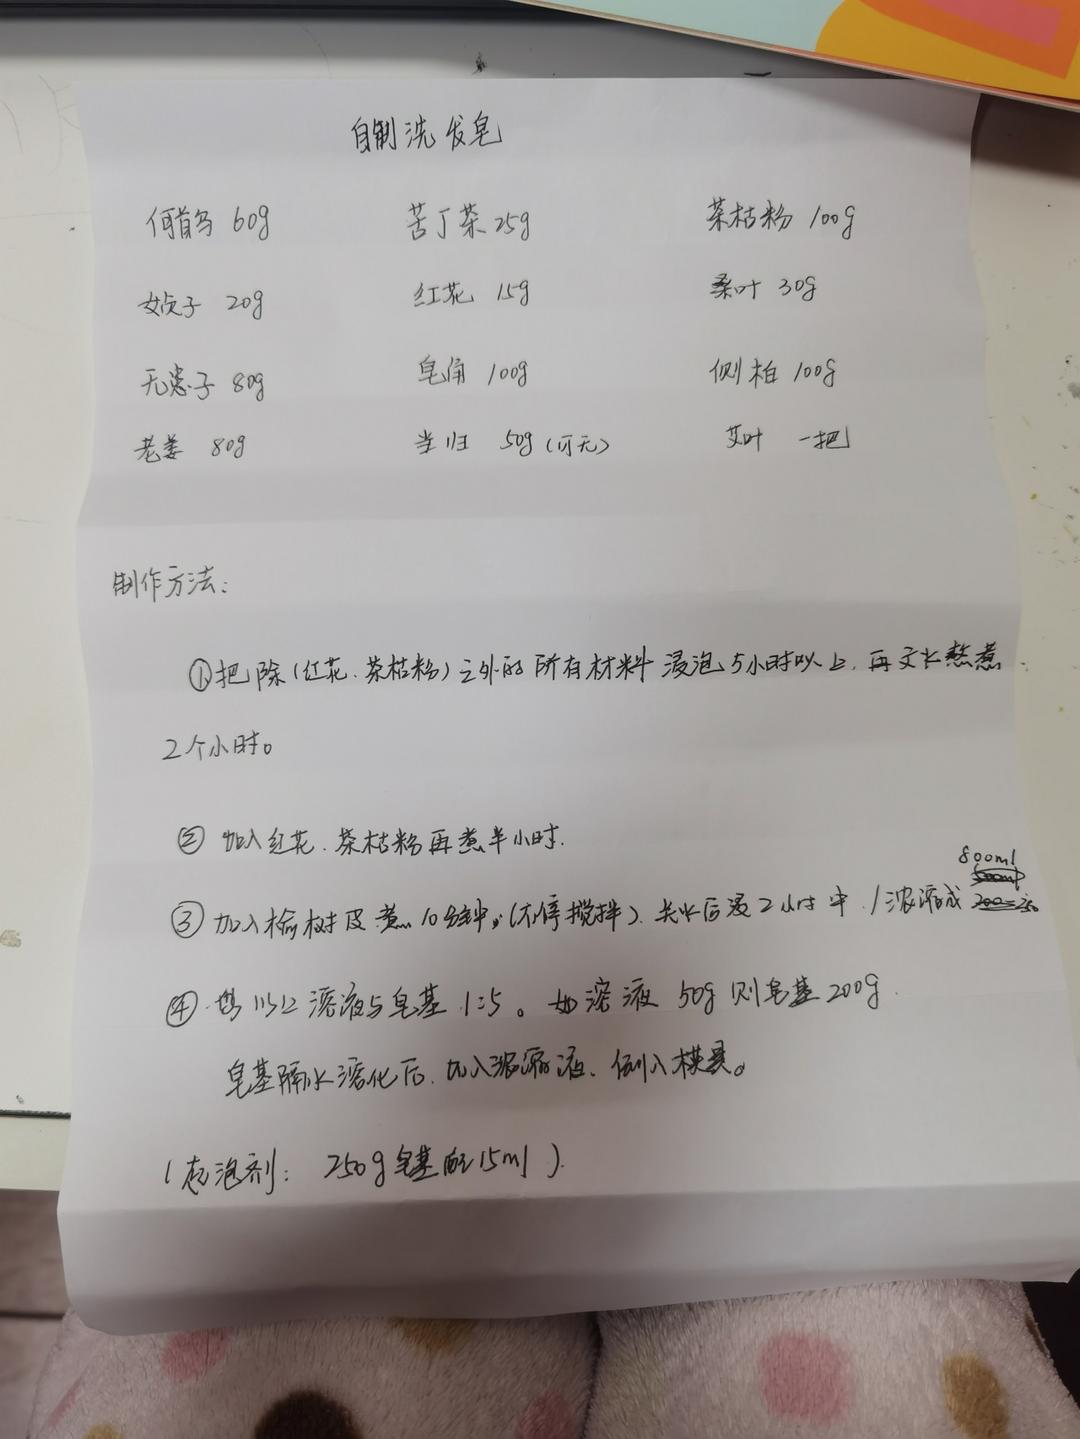 自制洗发皂
何首乌 60g 苦丁茶 25g 茶枯粉 100g
女贞子 20g 红花 15g 桑叶 30g
无患子 80g 皂角 100g 侧柏 100g
老姜 80g 当归 50g(可无) 艾叶 一把
制作方法:
①把除(红花、茶枯粉)之外的所有材料浸泡5小时以上,再文火熬煮
2个小时。
② 加入红花、茶枯粉再煮半小时.
800ml
③ 加入榆树皮煮10分钟,(不停搅拌)、关火后浸2小时中,浓缩成
④ 以 溶液与皂基 1:5。如溶液 50g 则皂基200g.
皂基隔水溶化后,加入浓缩液、倒入模具。
(起泡剂: 250g皂基配15ml).